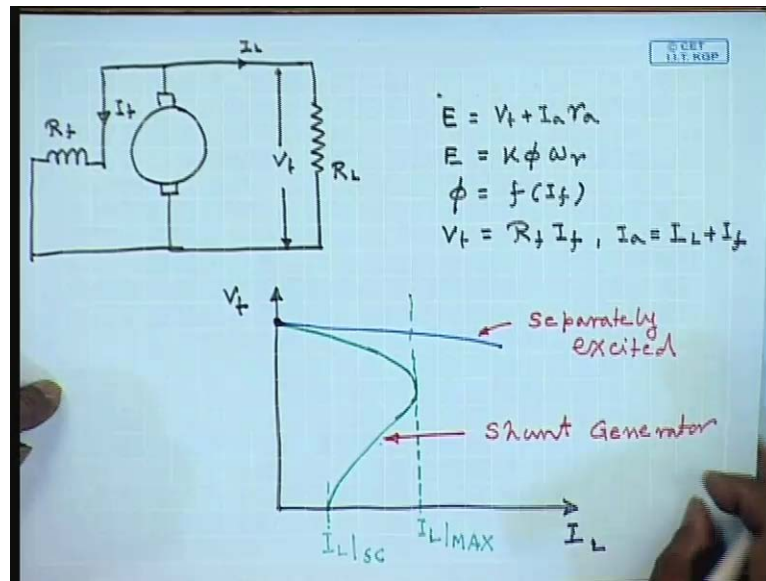 I_L
© CET
I.I.T. KGP
I_f
R_f
V_t
R_L
E = V_t + I_a r_a
E = K φ ω_r
φ = f(I_f)
V_t = R_f I_f , I_a = I_L + I_f
V_t
Separately
excited
Shunt Generator
I_L|SC
I_L|MAX
I_L